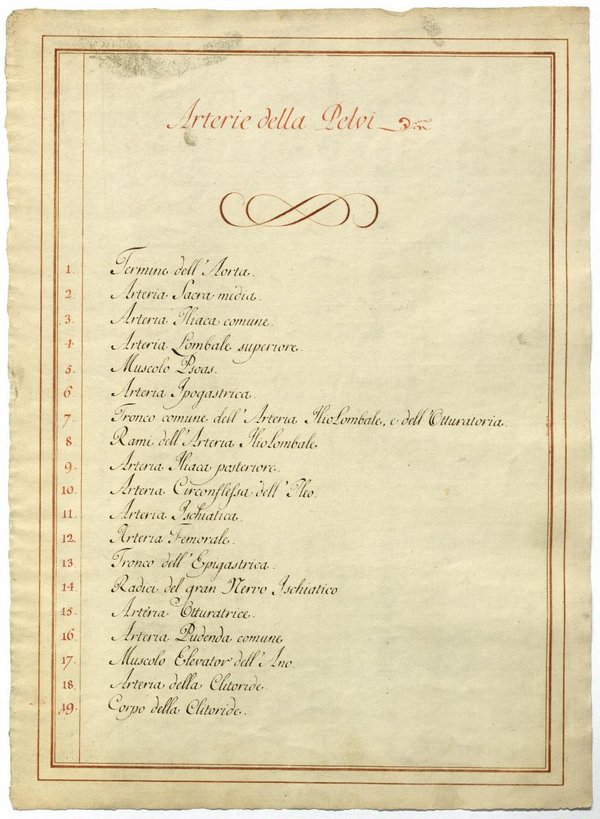 Arterie della Pelvi
1. Termine dell'Aorta.
2. Arteria Sacra media.
3. Arteria Iliaca comune.
4. Arteria Lombale superiore.
5. Muscolo Psoas.
6. Arteria Ipogastrica.
7. Tronco comune dell'Arteria IlioLombale, e dell'Otturatoria.
8. Rami dell'Arteria IlioLombale
9. Arteria Iliaca posteriore.
10. Arteria Circonflessa dell'Ileo.
11. Arteria Ischiatica.
12. Arteria Femorale.
13. Tronco dell'Epigastrica.
14. Radici del gran Nervo Ischiatico
15. Arteria Otturatrice.
16. Arteria Pudenda comune
17. Muscolo Elevator dell'Ano.
18. Arteria della Clitoride.
19. Corpo della Clitoride.